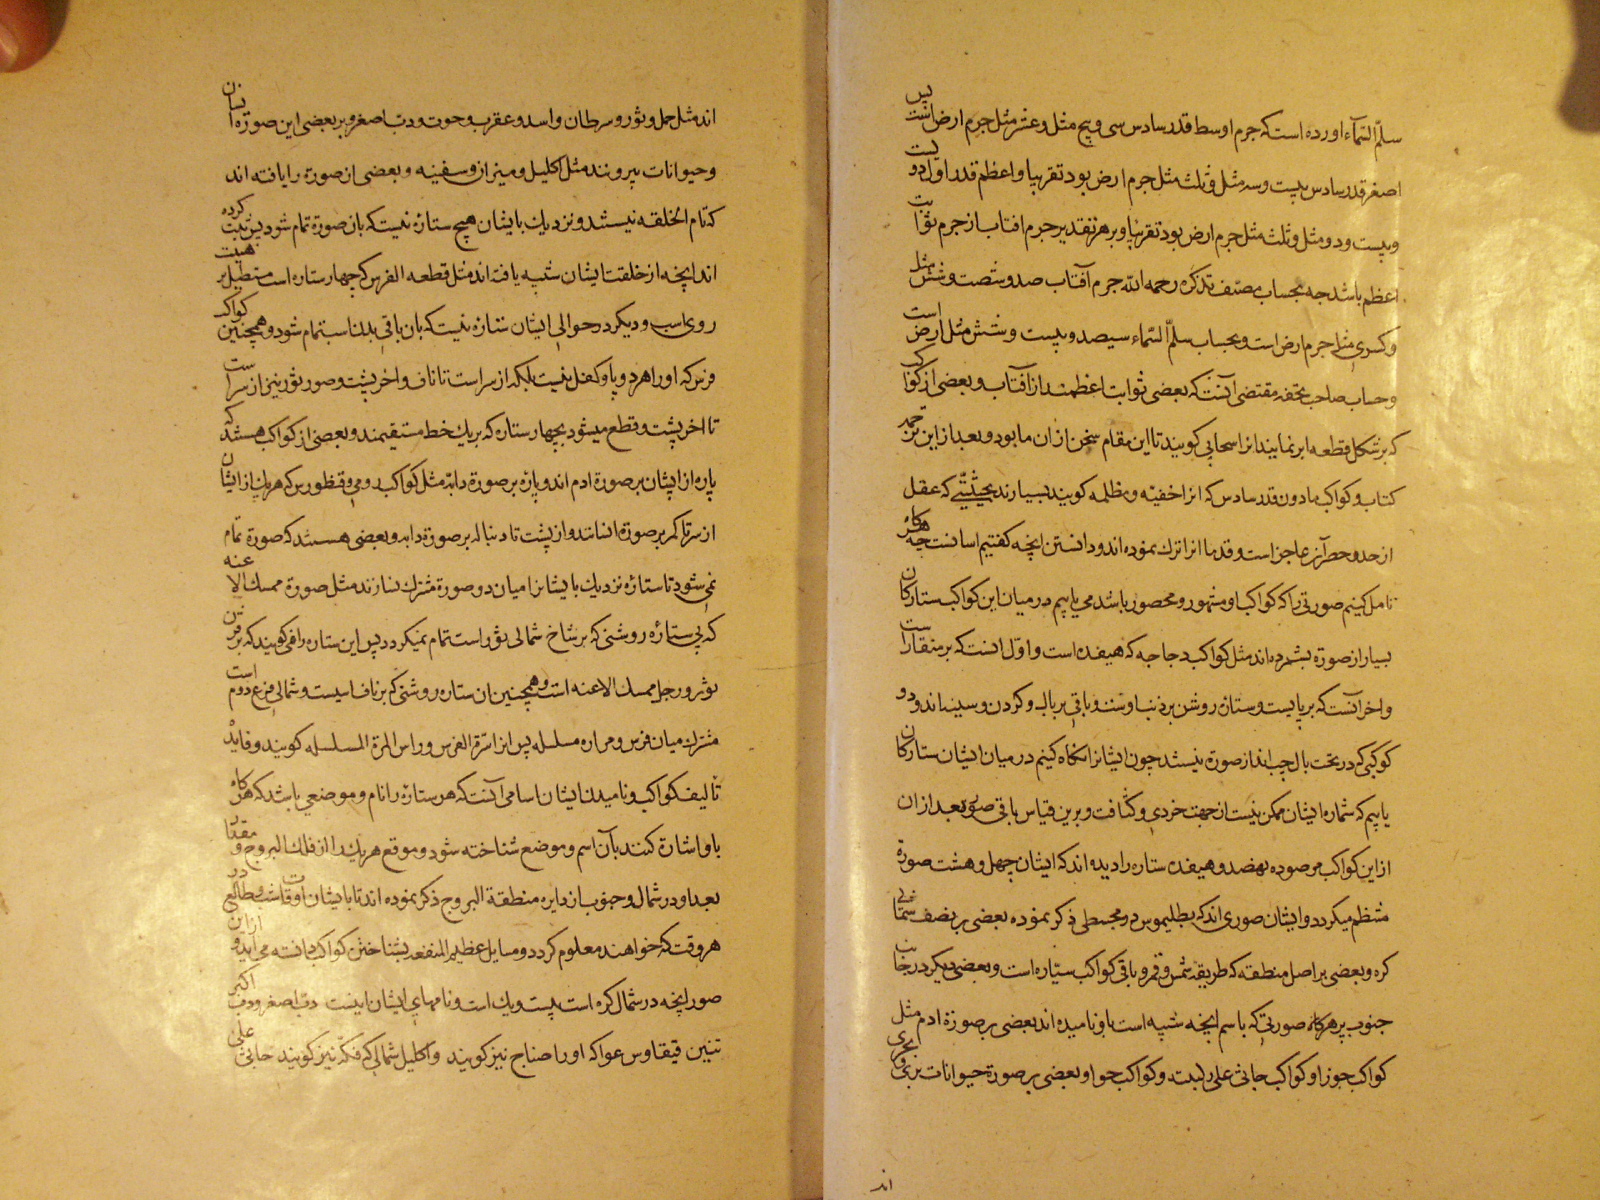 سلّم السّماء اورده است که جرم اوسط قدر سادس سی و پنج مثل و عشر مثل جرم ارض است پس
اصغر قدر سادس بیست و سه مثل و ثلث مثل جرم ارض بود تقریبا و اعظم قدر اول دویست
و بیست و دو مثل و ثلث مثل جرم ارض بود تقریبا و بر هر تقدیر جرم افتاب از جرم ثوابت
اعظم باشد جه بحساب مصنف تذکره رحمه الله جرم آفتاب صد و شصت و شش مثل
و کسری مثل جرم ارض است و بحساب سلّم السّماء سیصد و بیست و شش مثل ارض است
و حساب صاحب تحفه مقتضی آنست که بعضی ثوابت اعظمند از آفتاب و بعضی از کواکب
که بر شکل قطعه ابر نمایند انرا سحابی کویند تا این مقام سخن از ان ما بود و بعد از این ترجمه
کتاب و کواکب مادون قدر سادس که انرا خفیه و مظلمه کویند بسیارند بحیثیتی که عقل
از حد و حصر آن عاجز است و قدما انرا ترک نموده اند و دانستن انچه کفتیم اسانست جه هرکاه
تامل کنیم صورتی را که کواکب او مشهور و محصور باشد می یابیم در میان این کواکب ستارکان
بسیار از صورة بشمرده اند مثل کواکب دجاجه که هیفده است و اول انست که بر منقار است
و اخر آنست که بر پایست و ستاره روشن بر ذنب اوست و باقی بر بال و کردن و سینه اند و دو
کوکبی که در تحت بال چپ اند از صورة نیستند چون ایشانرا نکاه کنیم در میان ایشان ستارکان
یابیم که شماره ایشان ممکن نیست از جهت خردی و کثافت و برین قیاس باقی صور بعد از ان
از این کواکب مرصوده نهصد و هیفده ستاره را دیده اند که ایشان چهل و هشت صورة
منتظم میکردد و ایشان صوری اند که بطلیموس در مجسطی ذکر نموده بعضی بر نصف شمالی
کره و بعضی بر اصل منطقه که طریقه شمس و قمر و باقی کواکب سیاره است و بعضی دیکر در جانب
جنوب پس هرکاه صورتی که باسم انچه شبیه است باو نامیده اند بعضی بر صورة ادم مثل
کواکب جوزا و کواکب جاثی علی رکبته و کواکب حوا و بعضی بر صورة حیوانات بری و بحری
اند
اند مثل حمل و ثور و سرطان و اسد و عقرب و حوت و دب اصغر و بر بعضی این صورة انسان
و حیوانات بیرونند مثل اکلیل و میزان و سفینه و بعضی از صورة را یافته اند
که تام الخلقه نیستند و نزدیک بایشان هیچ ستاره نیست که بان صورة تمام شود پس ثبت کرده
اند انچه از خلقت ایشان شبیه یافته اند مثل قطعه الفرس که چهار ستاره است منطبق بر هیئت
روی اسب و دیکر در حوالی ایشان ستاره نیست که بان باقی بدن اسب تمام شود و همچنین کواکب
فرس که او را هر دو پا و کفل نیست بلکه از سر است تا ناف و اخر پشت و صور ثور نیز از سر است
تا اخر پشت و قطع میشود بچهار ستاره که بر یک خط مستقیمند و بعضی از کواکب هستند که
پاره از ایشان بر صورة ادم اند و پاره بر صورة دابه مثل کواکب رومی و قنطورس که هر یک از ایشان
از سر تا کمر بر صورة انسانند و از پشت تا دنباله بر صورة دابه و بعضی هستند که صورة تمام
نمی شود تا ستاره نزدیک بایشانرا میان دو صورة مشترک نسازند مثل صورة ممسک الاعنه
که بی ستاره روشنی که بر شاخ شمالی ثور است تمام نمیکردد پس این ستاره را فی کویند که بر قرن
ثور و رجل ممسک الاعنه است و همچنین ان ستاره روشنی که بر ناف اسبست و شمالی فرغ دوم است
مشترک میان فرس و مراه مسلسله پس انرا سرة الفرس و راس المرة المسلسله کویند و فایدهٔ
تالیف کواکب و نامیدن ایشان اسامی آنست که هر ستاره را نام و موضعی باشد که هرکاه
باو اشارة کنند بآن اسم و موضع شناخته شود و موقع هر یک را از فلک البروج و مقدار
بعد او در شمال و جنوب از دایره منطقة البروج ذکر نموده اند تا بایشان اوقات شب و طالع در
هر وقت که خواهند معلوم کردد و مسایل عظیم المنفعه بشناختن کواکب دانسته می اید و از این
صور انچه در شمال کره است بیست و یک است و نامهای ایشان اینست دب اصغر و دب اکبر
تنین قیقاوس عوا که او را صناج نیز کویند و اکلیل شمالی که فکّه نیز کویند جاثی علی